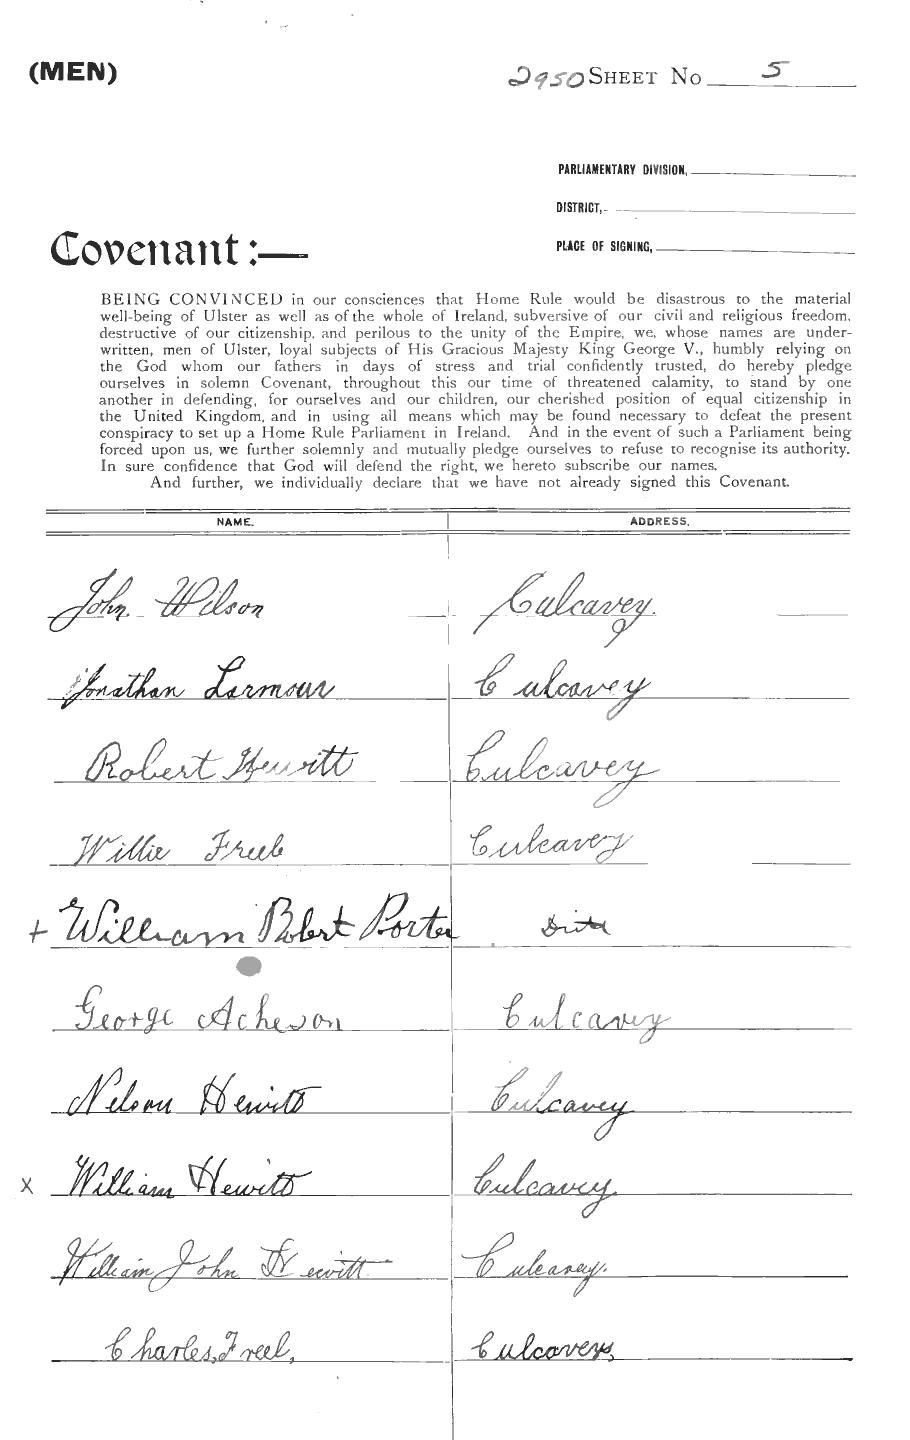 (MEN)
2950 SHEET No 5
PARLIAMENTARY DIVISION,
DISTRICT,
PLACE OF SIGNING,
Covenant :—
BEING CONVINCED in our consciences that Home Rule would be disastrous to the material
well-being of Ulster as well as of the whole of Ireland, subversive of our civil and religious freedom,
destructive of our citizenship, and perilous to the unity of the Empire, we, whose names are under-
written, men of Ulster, loyal subjects of His Gracious Majesty King George V., humbly relying on
the God whom our fathers in days of stress and trial confidently trusted, do hereby pledge
ourselves in solemn Covenant, throughout this our time of threatened calamity, to stand by one
another in defending, for ourselves and our children, our cherished position of equal citizenship in
the United Kingdom, and in using all means which may be found necessary to defeat the present
conspiracy to set up a Home Rule Parliament in Ireland. And in the event of such a Parliament being
forced upon us, we further solemnly and mutually pledge ourselves to refuse to recognise its authority.
In sure confidence that God will defend the right, we hereto subscribe our names.
And further, we individually declare that we have not already signed this Covenant.
NAME. ADDRESS.
John Wilson Culcavey.
Jonathan Larmour Culcavey
Robert Hewitt Culcavey
Willie Freeb Culcavey
+ William Robert Porter
George Acheson Culcavey
Nelson Hewitt Culcavey
x William Hewitt Culcavey.
William John Hewitt Culcavey.
Charles, Freel, Culcavey,